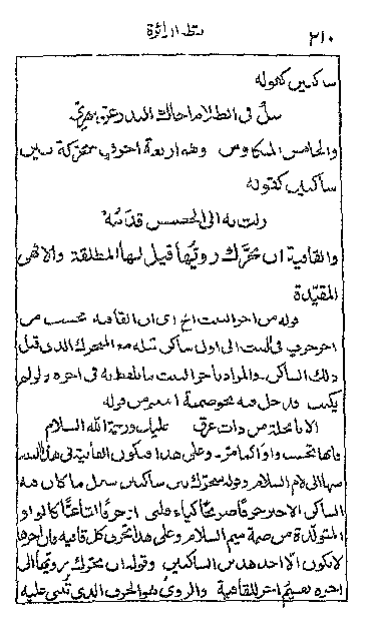 نقطة الدائرة
٢١٠
ساكنين كقوله
سل في الظلام اخاك البدر عن سهري
والخامس المتكاوس وهو اربعة احرف متحركة بين
ساكنين كقوله
زلت به الى الحضيض قدمه
والقافية ان تحرك رويها قيل لها المطلقة والا فهي
المقيدة
قوله من اخر البيت الخ اي ان القافية تحسب من
اخر حرف في البيت الى اول ساكن قبله مع المتحرك الذي قبل
ذلك الساكن. والمراد باخر البيت ما يلفظ به في اخره ولو لم
يكتب فدخل فيه نحو ضمة الميم من قوله
الا يا نخلة من ذات عرق عليك ورحمة الله السلام
فانها تحسب واوا كما مر. وعلى هذا فتكون القافية في هذا البيت
لام السلام وقوله متحرك بين ساكنين يشمل ما كان فيه
الساكن الاخير حرفا صريحا كياء قلبي او حرفا اشباعيا كالواو
المتولدة من ضمة ميم السلام وعلى هذا تجري كل قافية فان اخرها
لا يكون الا احد هذين الساكنين. وقوله ان تحرك رويها الى
اخره تقسيم اخر للقافية. والروي هو الحرف الذي تبنى عليه